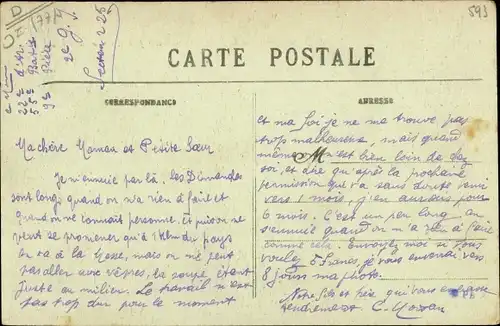 593
D
CARTE POSTALE
CORRESPONDANCE
ADRESSE
Ma chère Maman et Petite Sœur
Je m'ennuie par là. Les Dimanches
sont longs quand on n'a rien à faire et
quand on ne connait personne. et puis on ne
peut se promener qu'à 1 Klm du pays
on va à la messe, mais on ne peut
pas aller aux vêpres, la soupe étant
juste au milieu. Le travail n'est
pas trop dur pour le moment
et ma foi je ne me trouve pas
trop malheureux, mais quand
même on est bien loin de chez
soi, et dire qu'après la prochaine
permission qui va sans doute venir
vers 1 mois, j'en aurai pour
6 mois. C'est un peu long, on
s'ennuie quand on n'a rien à faire
comme cela. Envoyez moi si vous
voulez 5 francs, je vous enverrai vers
8 jours ma photo.
Notre fils et frère qui vous embrasse
tendrement C.